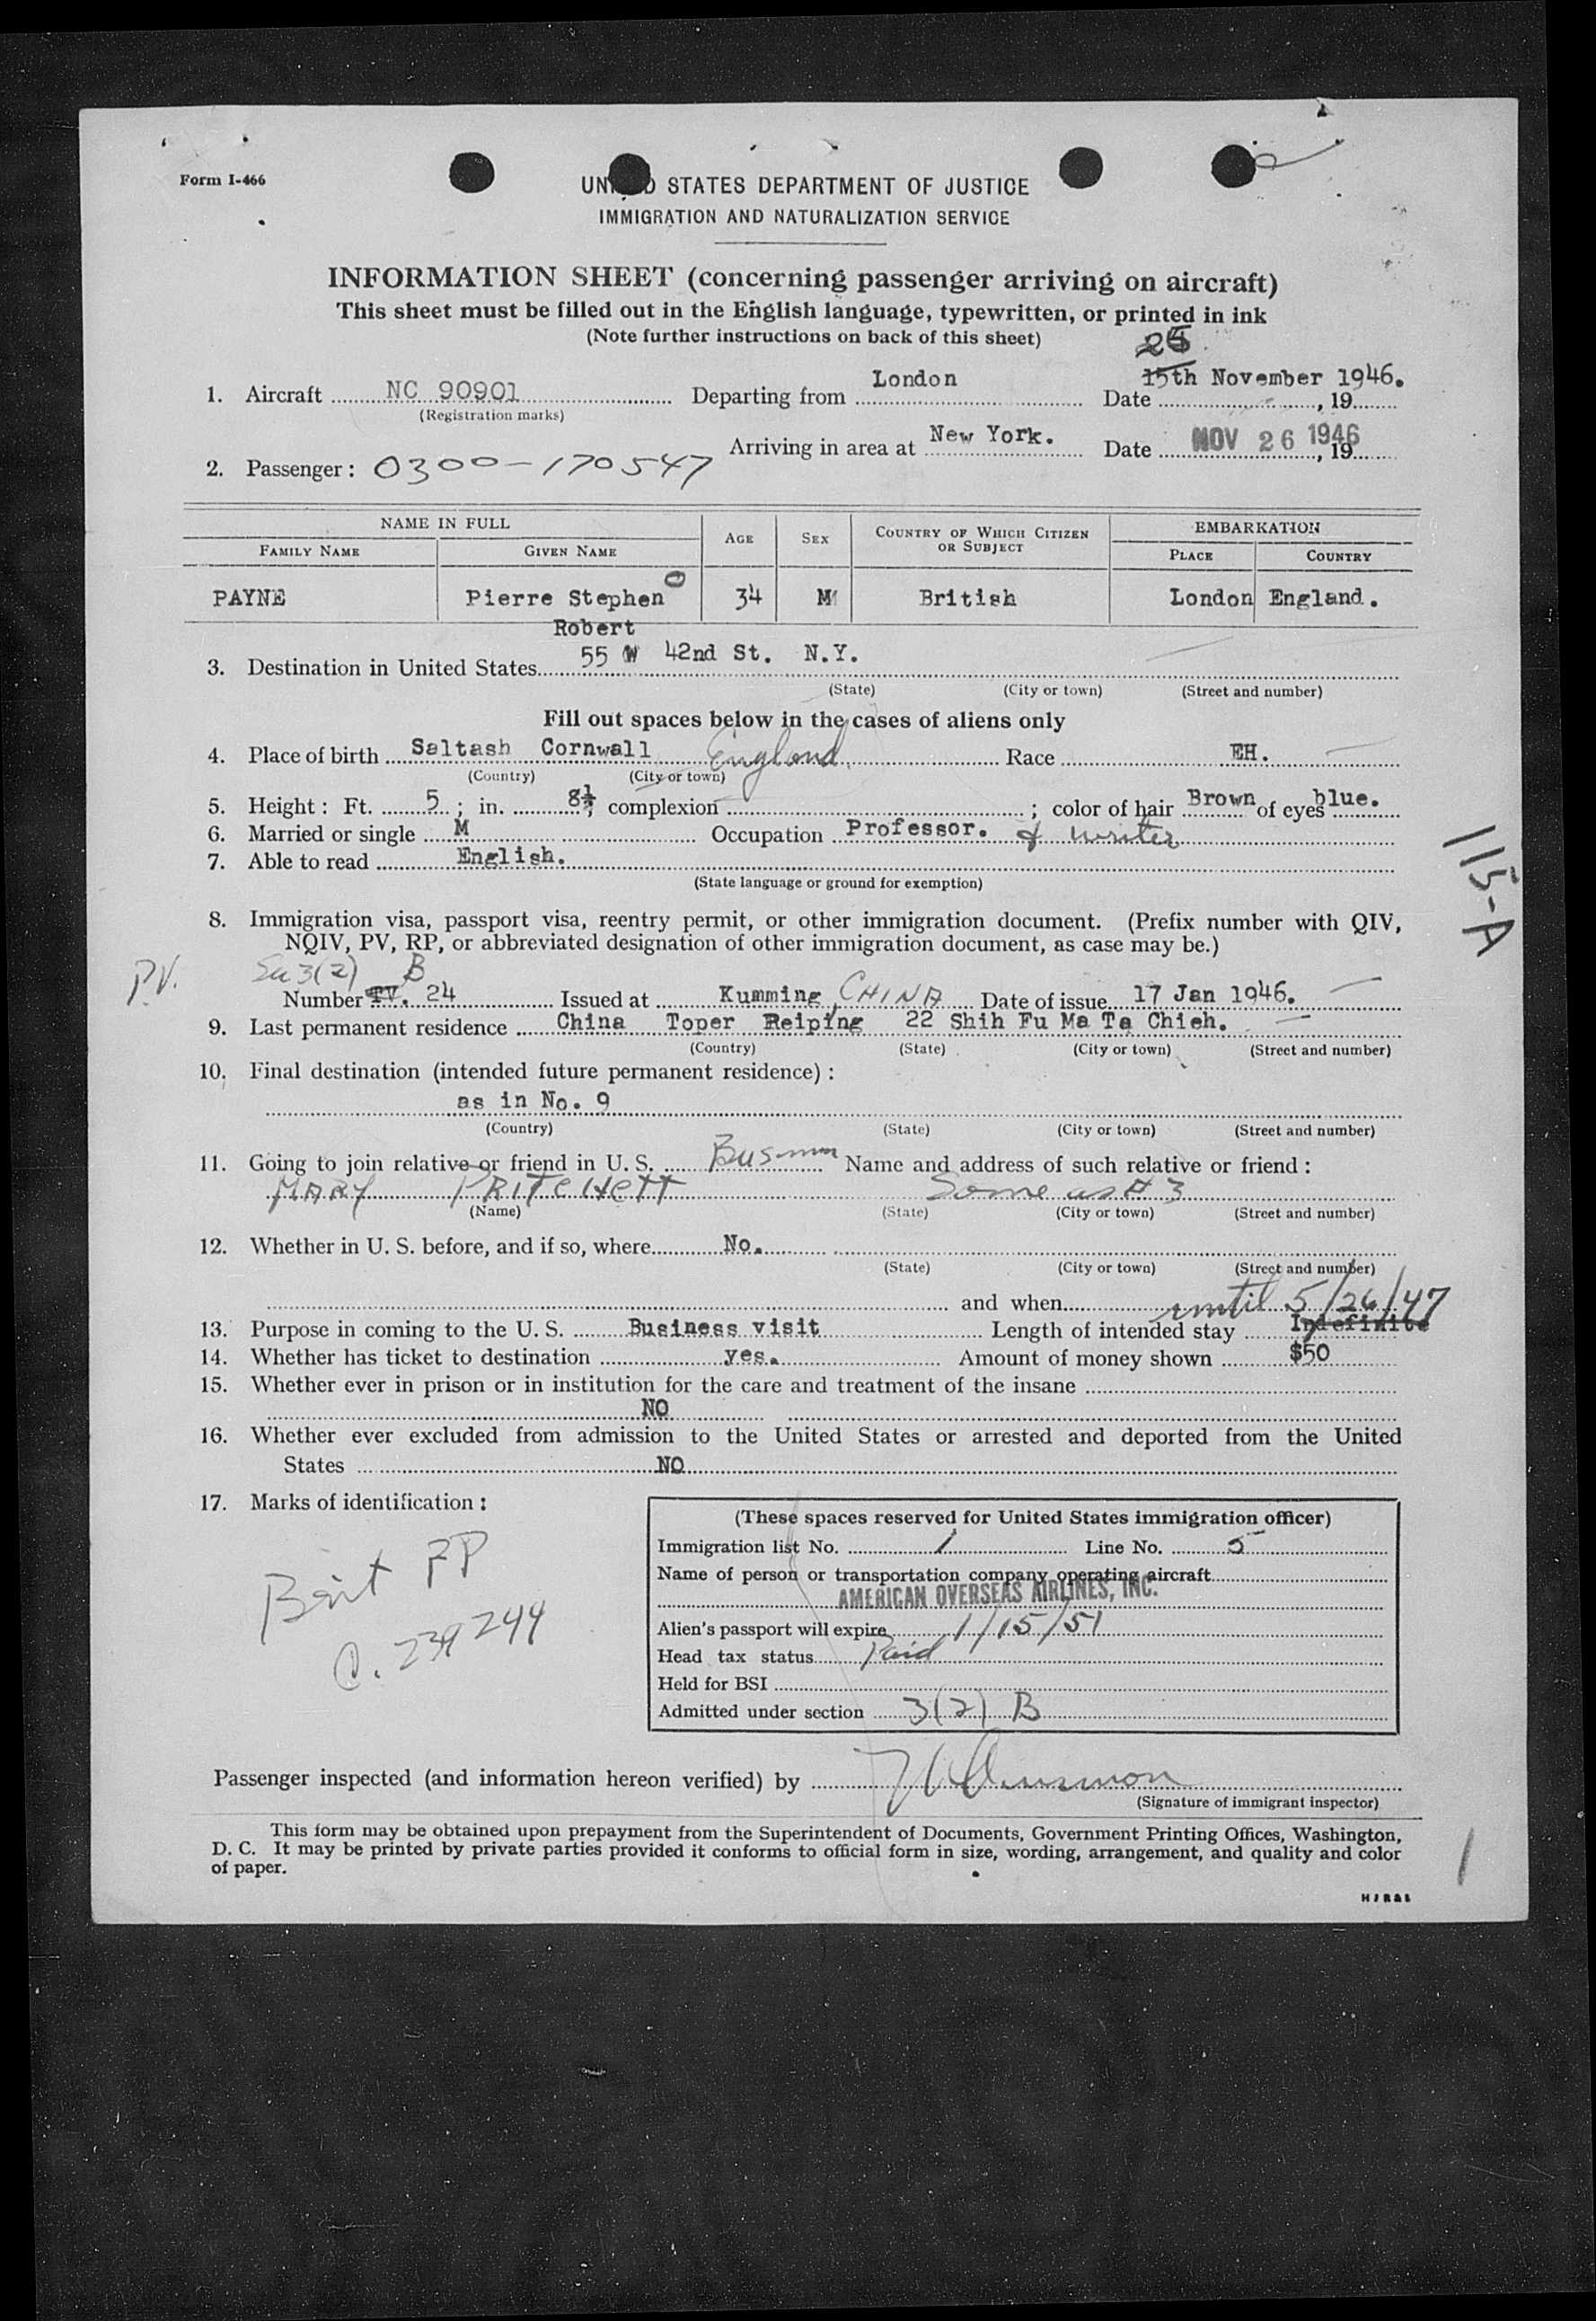 Form I-466
UNITED STATES DEPARTMENT OF JUSTICE
IMMIGRATION AND NATURALIZATION SERVICE
INFORMATION SHEET (concerning passenger arriving on aircraft)
This sheet must be filled out in the English language, typewritten, or printed in ink
(Note further instructions on back of this sheet)
1. Aircraft NC 90901 Departing from London Date 15th November 1946. , 19
(Registration marks)
Arriving in area at New York. Date NOV 26 1946 , 19
2. Passenger: 0300-170547
NAME IN FULL AGE SEX COUNTRY OF WHICH CITIZEN OR SUBJECT EMBARKATION
FAMILY NAME GIVEN NAME PLACE COUNTRY
PAYNE Pierre Stephen 0 34 M British London England.
Robert
3. Destination in United States 55 W 42nd St. N.Y.
(State) (City or town) (Street and number)
Fill out spaces below in the cases of aliens only
4. Place of birth Saltash Cornwall England Race EH.
(Country) (City or town)
5. Height: Ft. 5 ; in. 8½ ; complexion ; color of hair Brown of eyes blue.
6. Married or single M Occupation Professor. & writer
7. Able to read English.
(State language or ground for exemption)
115-A
8. Immigration visa, passport visa, reentry permit, or other immigration document. (Prefix number with QIV,
NQIV, PV, RP, or abbreviated designation of other immigration document, as case may be.)
P.V. 3(2) B
Number 24 Issued at Kumming, CHINA Date of issue 17 Jan 1946.
9. Last permanent residence China Toper Reiping 22 Shih Fu Ma Ta Chieh.
(Country) (State) (City or town) (Street and number)
10. Final destination (intended future permanent residence):
as in No. 9
(Country) (State) (City or town) (Street and number)
11. Going to join relative or friend in U. S. Name and address of such relative or friend:
MARY PRITCHETT Same as # 3
(Name) (State) (City or town) (Street and number)
12. Whether in U. S. before, and if so, where No.
(State) (City or town) (Street and number)
and when until 5/26/47
13. Purpose in coming to the U. S. Business visit Length of intended stay Indefinite
14. Whether has ticket to destination yes. Amount of money shown $50
15. Whether ever in prison or in institution for the care and treatment of the insane
NO
16. Whether ever excluded from admission to the United States or arrested and deported from the United
States NO
17. Marks of identification:
Brit PP
239244
(These spaces reserved for United States immigration officer)
Immigration list No. 1 Line No. 5
Name of person or transportation company operating aircraft
AMERICAN OVERSEAS AIRLINES, INC.
Alien's passport will expire 1/15/51
Head tax status Paid
Held for BSI
Admitted under section 3(2) B
Passenger inspected (and information hereon verified) by
(Signature of immigrant inspector)
This form may be obtained upon prepayment from the Superintendent of Documents, Government Printing Offices, Washington,
D. C. It may be printed by private parties provided it conforms to official form in size, wording, arrangement, and quality and color
of paper.